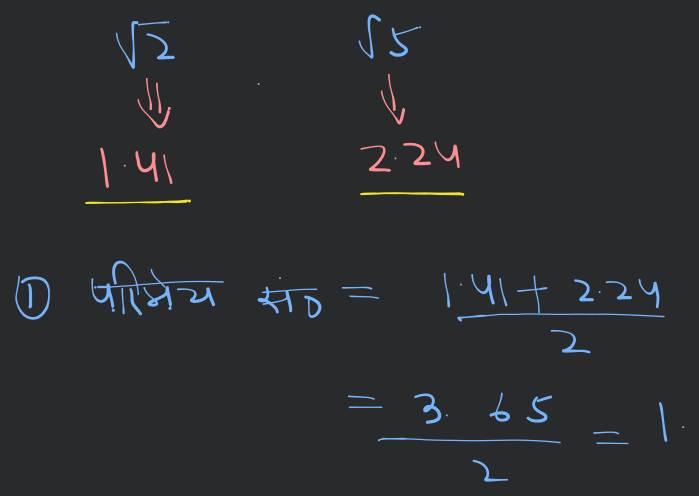 √2 √5
⇓ ↓
1.41 2.24
① परिमेय सं० = (1.41 + 2.24)/2
= 3.65/2 = 1.